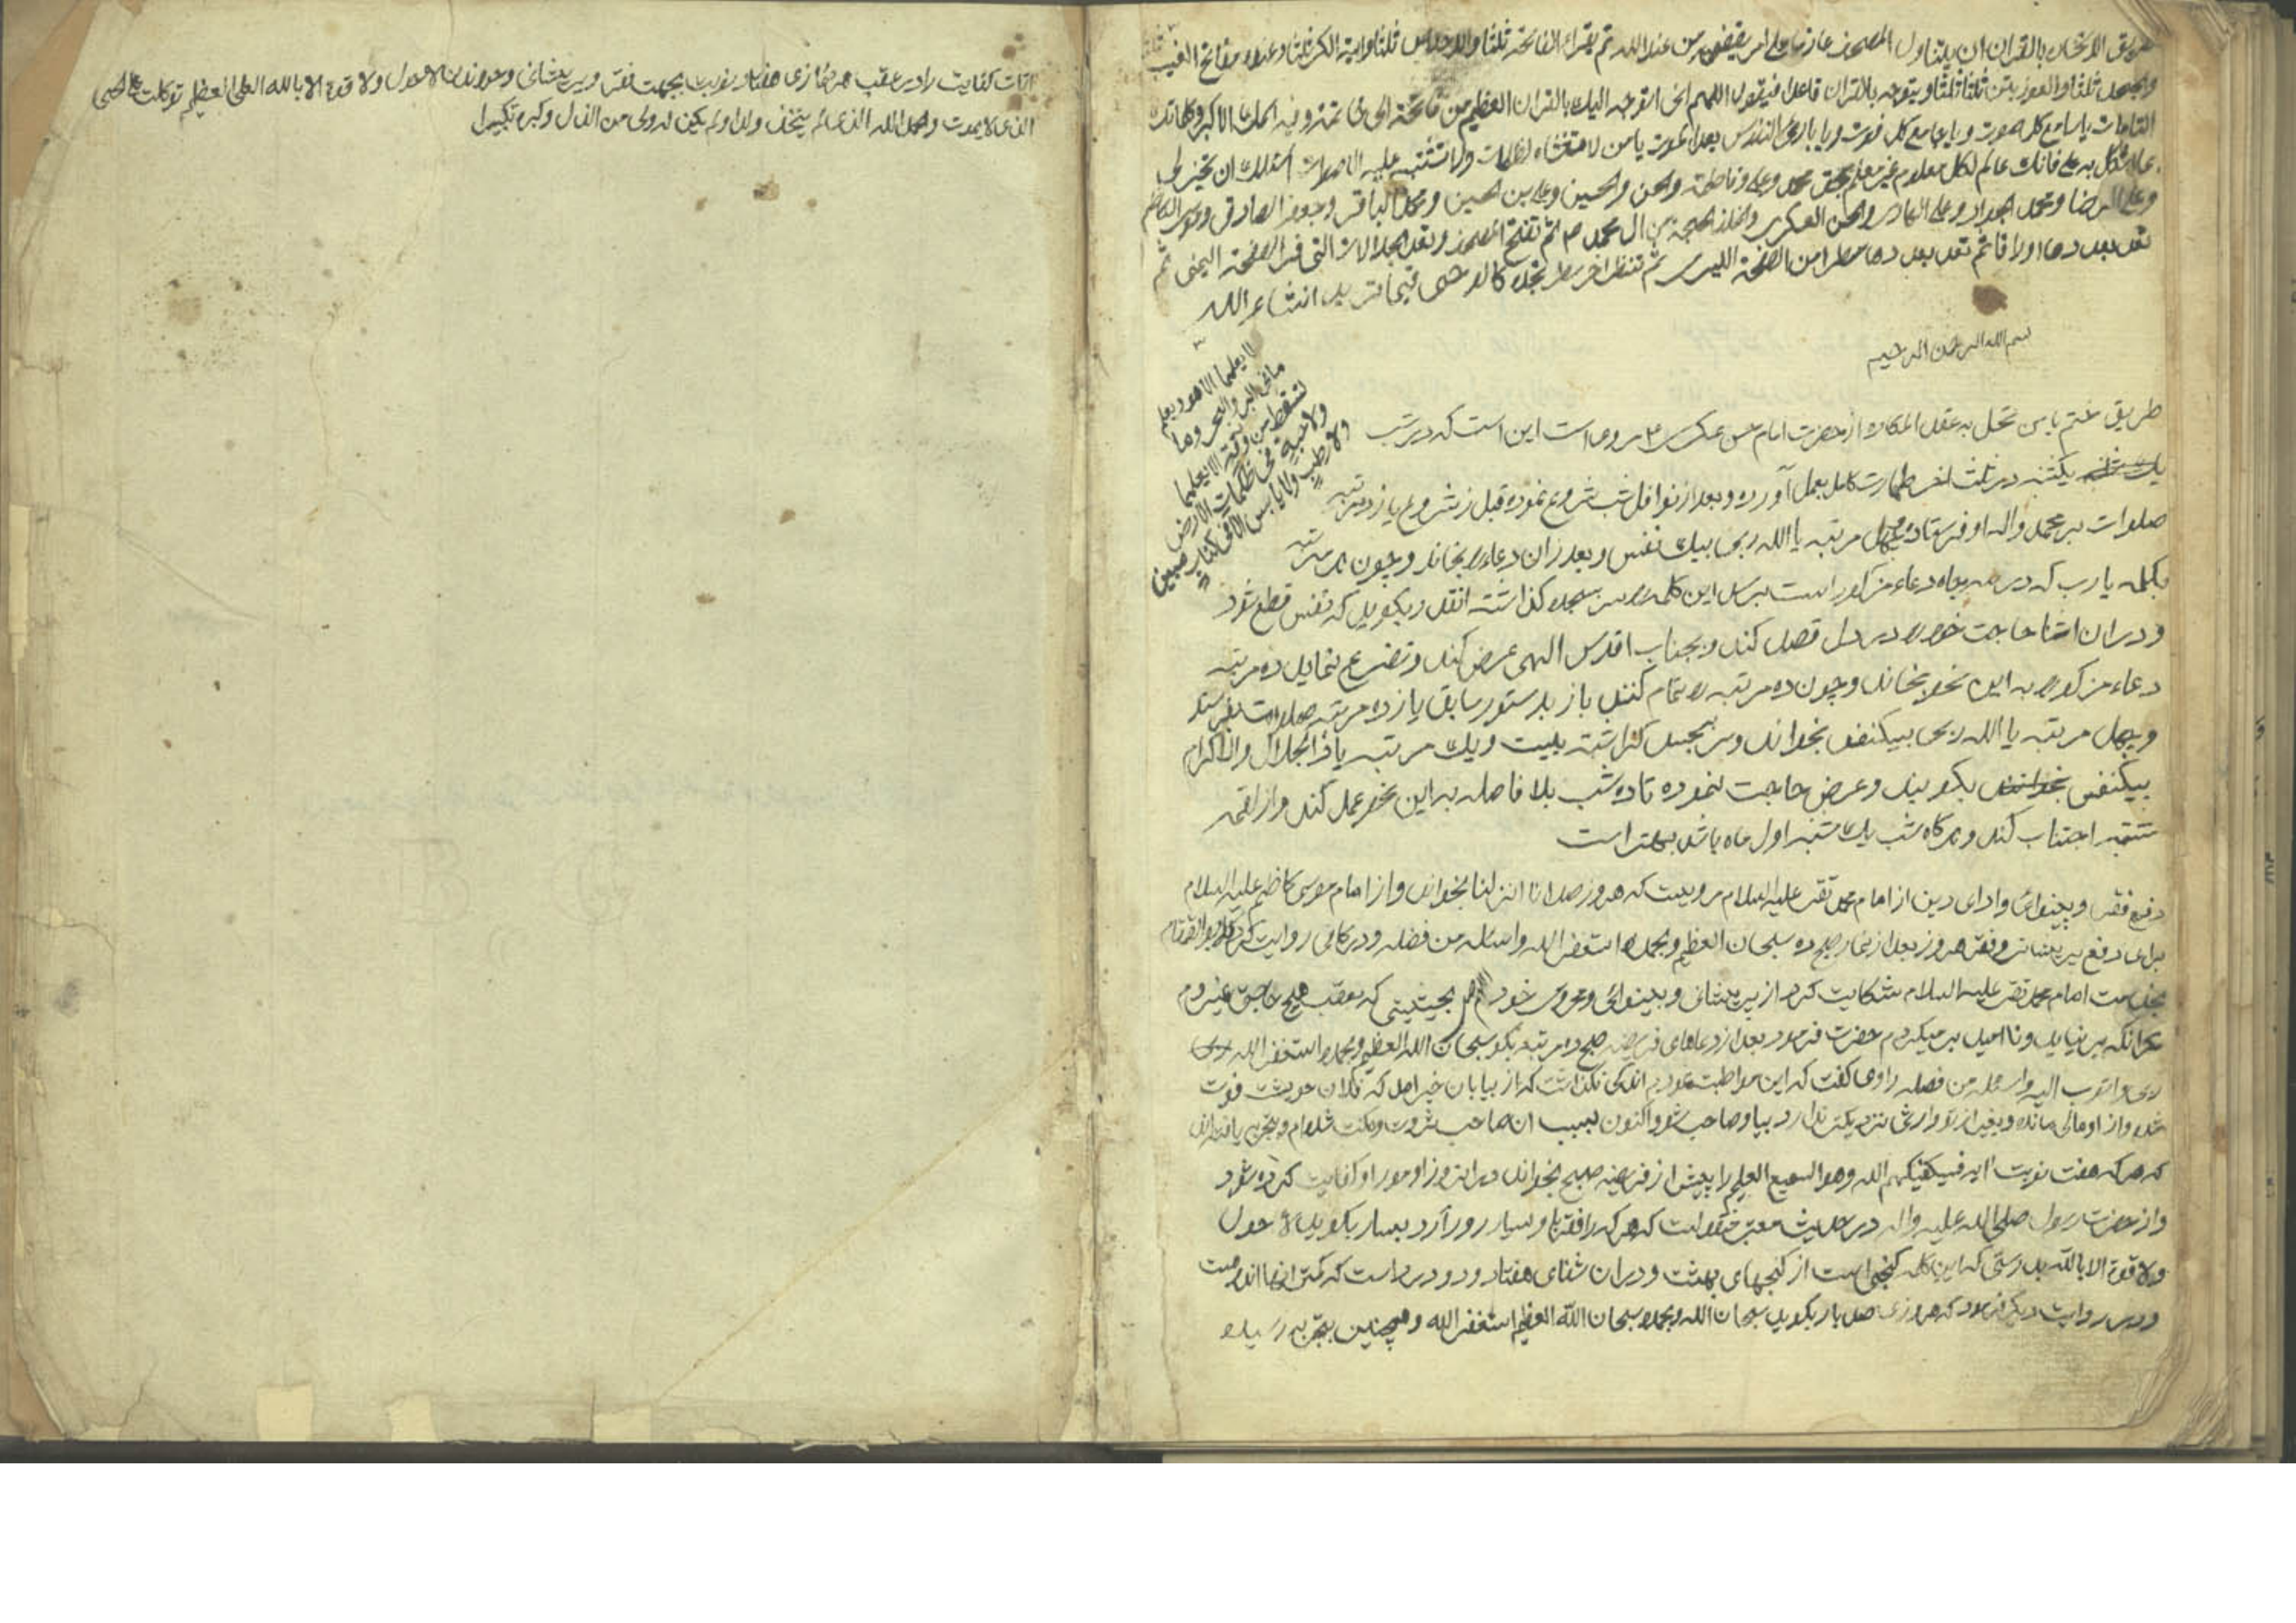 طريق الاستخاره بالقران ان يتناول المصحف عازما على امر يقتضى من عند الله ثم يقراء الفاتحه ثلثا والاخلاص ثلثا واية الكرسى ثلثا وعنده مفاتح الغيب ثلثا
والجحد ثلثا والمعوذتين ثلثا ثلثا ويتوجه بالقران قاعدا فيقول اللهم انى اتوجه اليك بالقران العظيم من فاتحته الى خاتمته وفيه اسمك الاكبر وكلماتك
التامات يا سامع كل صوت ويا جامع كل فوت ويا بارئ النفوس بعد الموت يا من لا تغشاه الظلمات ولا تشتبه عليه الاصوات اسئلك ان تخير لى
بما اشكل به على فانك عالم بكل معلوم غير معلم بحق محمد وعلى وفاطمة والحسن والحسين وعلى بن الحسين ومحمد الباقر وجعفر الصادق وموسى الكاظم
وعلى الرضا ومحمد الجواد وعلى الهادى والحسن العسكرى والخلف الحجة من ال محمد ثم تفتح المصحف وتعد الجلالات التى فى الصفحة اليمنى ثم
تعد بعددها اوراقا ثم تعد بعددها سطرا من الصفحة اليسرى ثم تنظر اخر سطر تجده كالوحى فيما تريد انشاء الله
لا يعلمها الا هو ويعلم
ما فى البر والبحر وما
تسقط من ورقة الا يعلمها
ولا حبة فى ظلمات الارض
ولا رطب ولا يابس الا فى كتاب مبين
بسم الله الرحمن الرحيم
طريق ختم يا من تحل به عقد المكاره از حضرت امام حسن عسكرى مروى است اين است كه در شب
يكشنبه در ثلث اخر طهارت كامل بعمل آورده وبعد از نوافل شب شروع نموده قبل از شروع يازده مرتبه
صلوات بر محمد واله او فرستاده وچهل مرتبه يا الله ربى بيك نفس وبعد از ان دعاء را بخاند وچون بر سر تبه
بكلمه يا رب كه در دعاء مذكور است برسد اين كلمه را سر بسجده كذاشته انقدر بكويد كه نفس قطع شود
ودر ان اثنا حاجت خود را در دل قصد كند وبجناب اقدس الهى عرض كند وتضرع نمايد ده مرتبه
دعاء مذكور را به اين نحو بخاند وچون ده مرتبه را تمام كنند باز بدستور سابق يازده مرتبه صلوات بفرستد
وچهل مرتبه يا الله ربى بيكنفس بخواند وسر بسجده كذاشته بيست ويك مرتبه يا ذا الجلال والاكرام
بيكنفس بكويند وعرض حاجت نموده تا ده شب بلا فاصله به اين نحو عمل كند واز لقمه
شبهه اجتناب كند وهركاه شب يك شنبه اول ماه باشد بهتر است
دفع فقر وبينوائى واداى دين از امام محمد تقى عليه السلام مرويست كه هر روز صد انا انزلنا بخواند واز امام موسى كاظم عليه السلام
براى دفع پريشانى وفقر هر روز بعد از نماز صبح ده سبحان العظيم وبحمده استغفر الله واسئله من فضله ودر كافى روايت كرده كه ابو القمقام
بخدمت امام محمد تقى عليه السلام شكايت كرد از پريشانى وبينوائى ومحرومى خود بحيثيتى كه بعقب هيچ حاجتى نميروم
مكر انكه بر نيايد ونا اميد بر ميكردم حضرت فرمود بعد از دعاهاى فريضه صبح ده مرتبه بكو سبحان الله العظيم وبحمده استغفر الله
ربى واتوب اليه واسئله من فضله راوى كفت كه اين مواظبت نمودم اندكى نكذشت كه از بيابان خبر امد كه فلان خويشت فوت
شده واز او مالى مانده وبغير از تو وارثى نزديكتر ندارد بيا وصاحب شو واكنون بسبب ان صاحب ثروت ومكنت شده ام وبتجربه يافته اند
كه هر كه هفت نوبت ايه فسيكفيكهم الله وهو السميع العليم را پيش از فريضه صبح بخواند در انروز امور او كفايت كرده شود
واز حضرت رسول صلى الله عليه واله در حديث معتبر منقولست كه هر كه را فقر باو بسيار رو آرد بسيار بكويد لا حول
ولا قوة الا بالله بدرستى كه اين كلمه كنجى است از كنجهاى بهشت ودر ان شفاى هفتاد ودو درد است كه كمتر انها اندوهست
ودر روايت ديكر فرمود كه هر روزى صد بار بكويد سبحان الله وبحمده سبحان الله العظيم استغفر الله وهمچنين بتجربه رسيده
ايات كفايت را در عقب هر نمازى هفتاد نوبت بجهت فقر وپريشانى وخواندن لا حول ولا قوة الا بالله العلى العظيم توكلت على الحى
الذى لا يموت والحمد لله الذى لم يتخذ ولدا ولم يكن له ولى من الذل وكبره تكبيرا